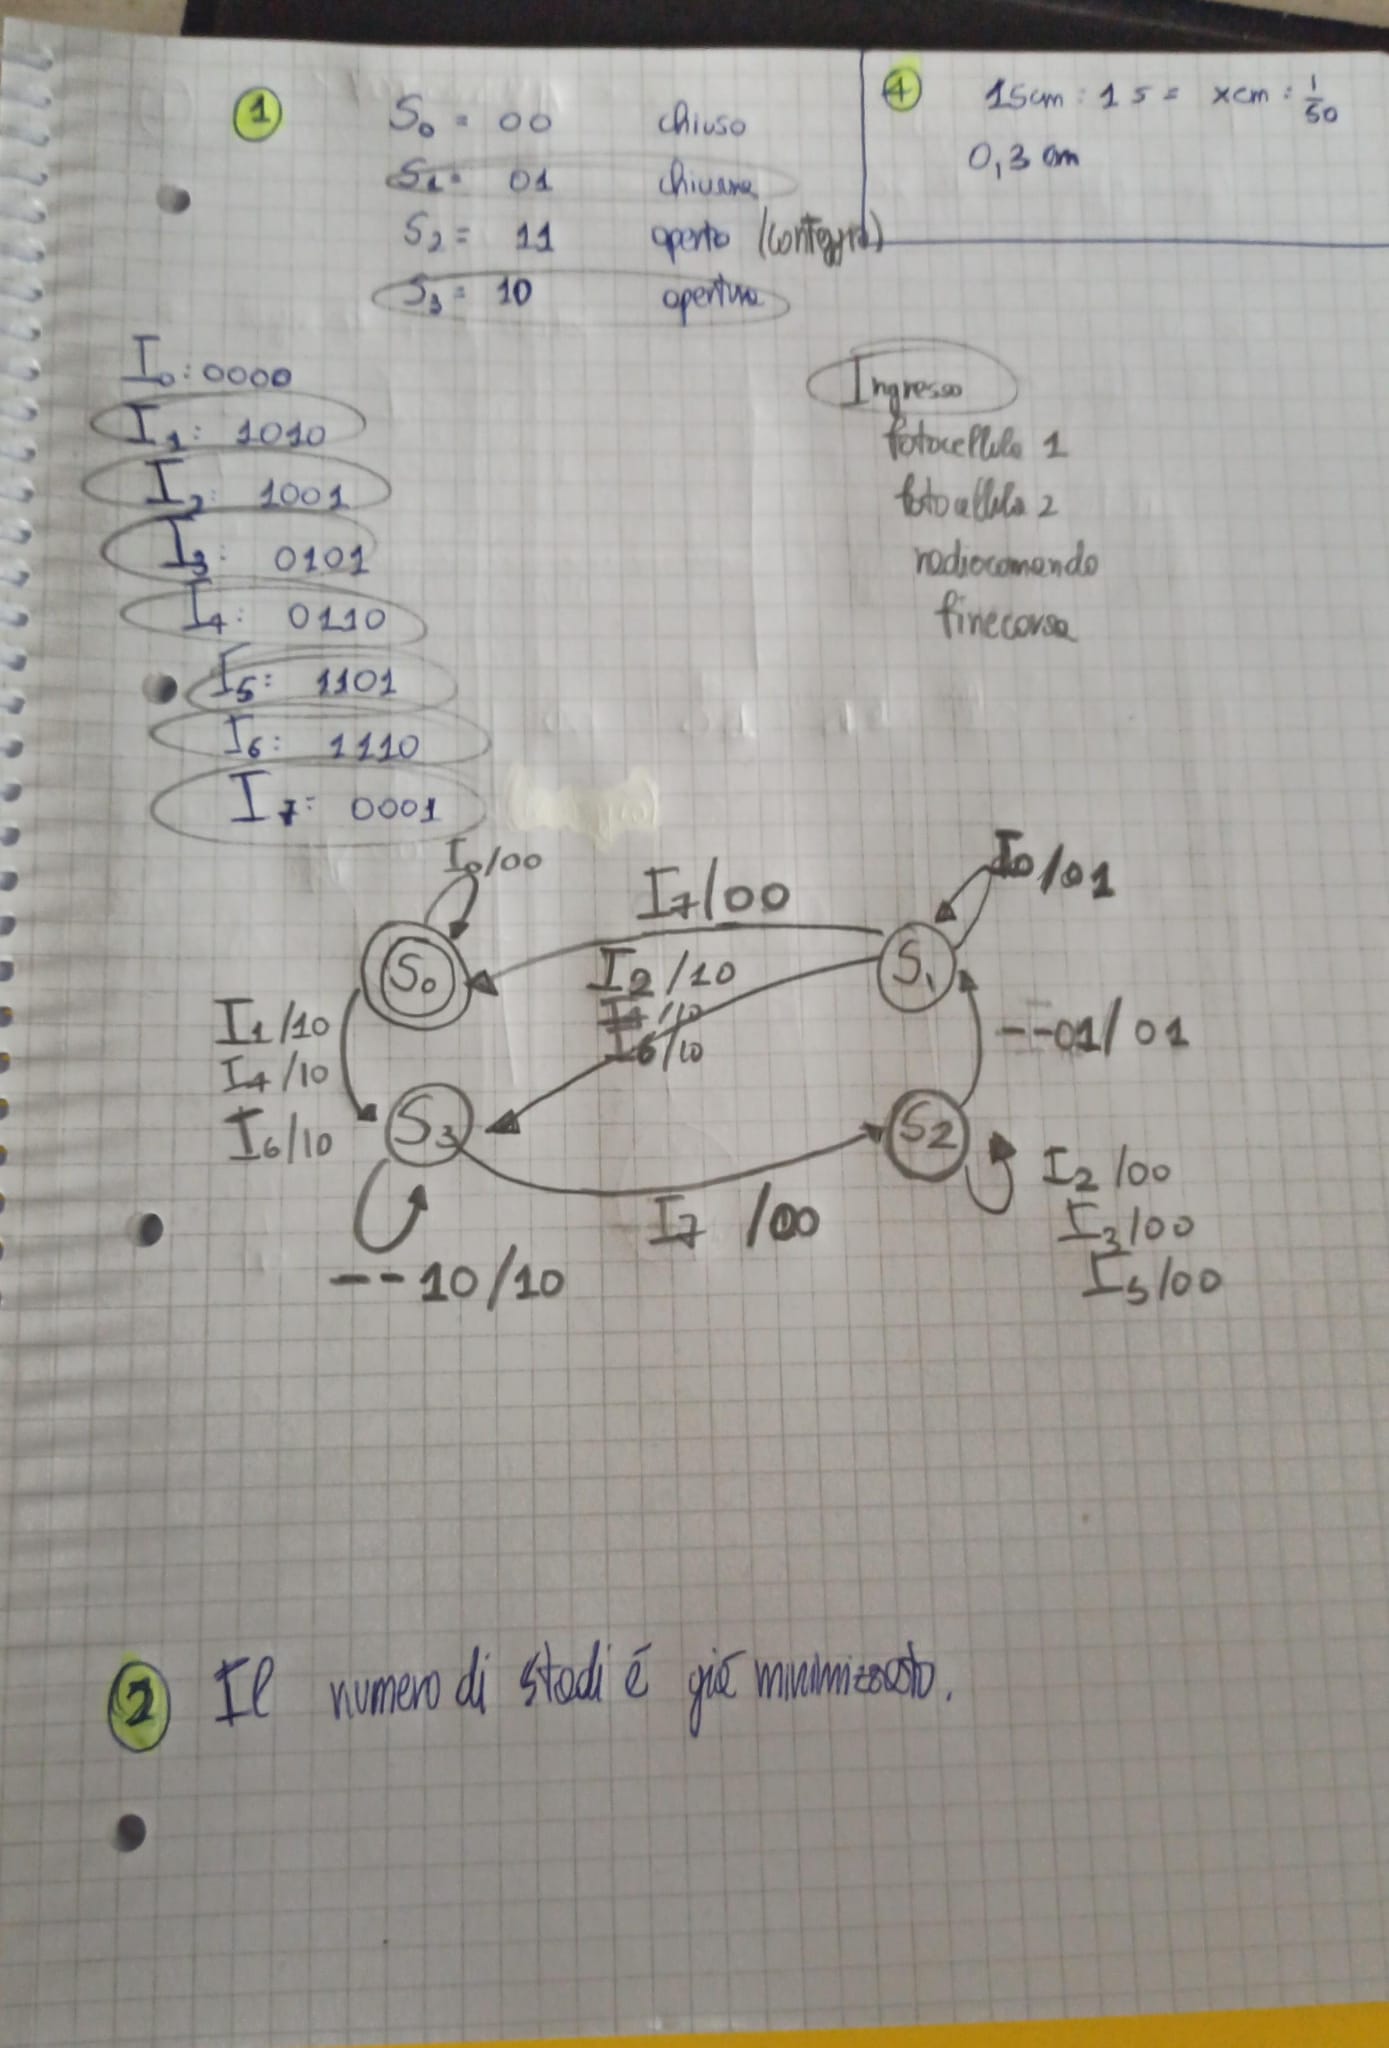 1
S0 = 00 chiuso
S1 = 01 chiusura
S2 = 11 aperto (conteggio)
S3 = 10 apertura
4 15cm : 1 s = x cm : 1/50
0,3 cm
I0 : 0000
I1 : 1010
I2 : 1001
I3 : 0101
I4 : 0110
I5 : 1101
I6 : 1110
I7 : 0001
Ingresso
fotocellula 1
fotocellula 2
radiocomando
finecorsa
I0/00
I7/00
I0/01
S0
S1
I2/10
I6/10
I1/10
I4/10
I6/10
--01/01
S3
S2
I7 /00
I2 /00
I3/00
I5/00
--10/10
2 Il numero di stadi é giá minimizzato.